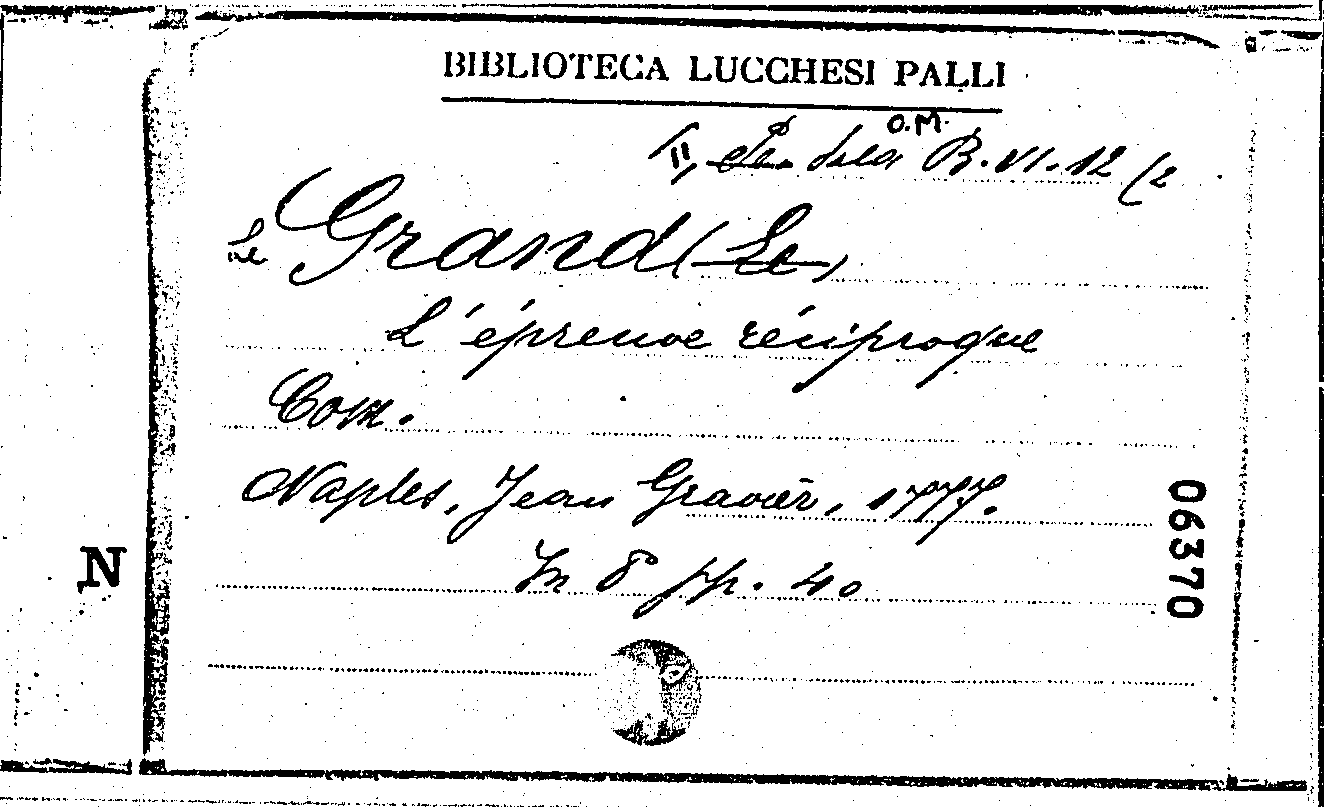 BIBLIOTECA LUCCHESI PALLI
O.M.
II, Sala B. VI. 12 (2
Le Grand (Le)
L'épreuve réciproque
Com.
Naples, Jean Gravier, 1777.
In 8° pp. 40
06370
N